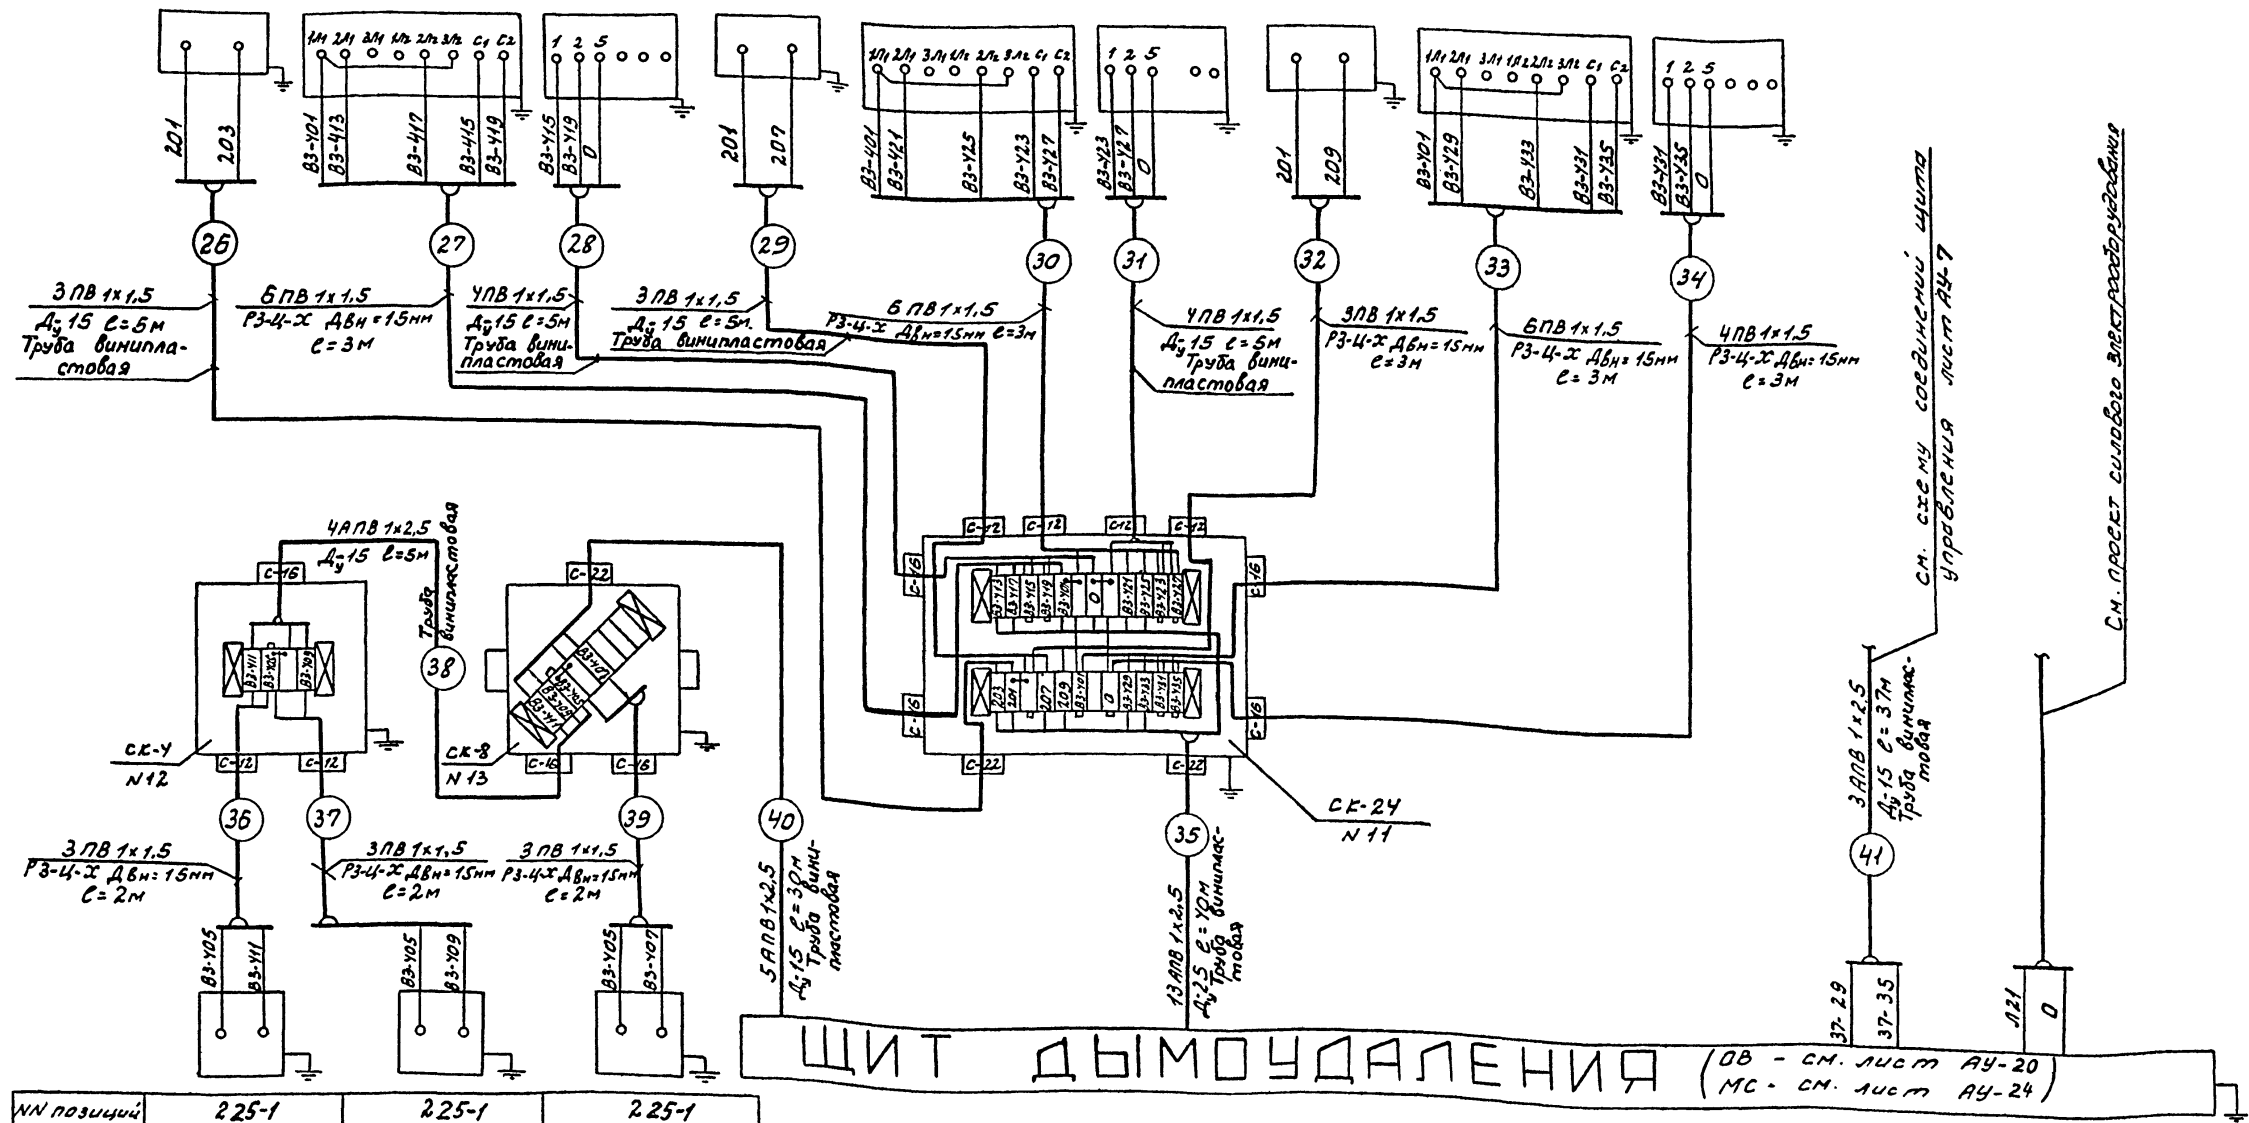 1Л1 2Л1 3Л1 1Л2 2Л2 3Л2 С1 С2
1 2 5
1Л1 2Л1 3Л1 1Л2 2Л2 3Л2 С1 С2
1 2 5
1Л1 2Л1 3Л1 1Л2 2Л2 3Л2 С1 С2
1 2 5
201
203
В3-401
В3-413
В3-417
В3-415
В3-419
В3-415
В3-419
0
201
207
В3-401
В3-421
В3-425
В3-423
В3-427
В3-423
В3-427
0
201
209
В3-401
В3-429
В3-433
В3-431
В3-435
В3-431
В3-435
0
26
27
28
29
30
31
32
33
34
3ПВ 1×1,5
Ду-15 ℓ=5м
Труба винипла-
стовая
6ПВ 1×1,5
РЗ-Ц-Х Двн=15мм
ℓ=3м
4ПВ 1×1,5
Ду-15 ℓ=5м
Труба вини-
пластовая
3ПВ 1×1,5
Ду-15 ℓ=5м.
Труба винипластовая
6ПВ 1×1,5
РЗ-Ц-Х Двн=15мм ℓ=3м
4ПВ 1×1,5
Ду-15 ℓ=5м
Труба вини-
пластовая
3ПВ 1×1,5
РЗ-Ц-Х Двн=15мм
ℓ=3м
6ПВ 1×1,5
РЗ-Ц-Х Двн=15мм
ℓ=3м
4ПВ 1×1,5
РЗ-Ц-Х Двн=15мм
ℓ=3м
см. схему соединений щита
управления лист АУ-7
См. проект силового электрооборудования
4АПВ 1×2,5
Ду-15 ℓ=5м
Труба
винипластовая
С-16
В3-411
В3-405
В3-409
СК-4
N12
С-12
С-12
38
С-22
В3-407
В3-405
В3-409
В3-411
СК-8
N13
С-16
С-16
С-12
С-12
С-12
С-12
С-16
С-16
С-16
С-16
В3-413
В3-417
В3-415
В3-419
В3-401
0
В3-421
В3-425
В3-423
В3-427
203
201
207
209
В3-401
0
В3-429
В3-433
В3-431
В3-435
С-22
С-22
СК-24
N11
36
37
39
40
35
41
3ПВ 1×1,5
РЗ-Ц-Х Двн=15мм
ℓ=2м
3ПВ 1×1,5
РЗ-Ц-Х Двн=15мм
ℓ=2м
3ПВ 1×1,5
РЗ-Ц-Х Двн=15мм
ℓ=2м
5АПВ 1×2,5
Ду-15 ℓ=30м
Труба вини-
пластовая
13АПВ 1×2,5
Ду-25 ℓ=40м
Труба винилплас-
товая
3АПВ 1×2,5
Ду-15 ℓ=37м
Труба винилплас-
товая
В3-405
В3-411
В3-405
В3-409
В3-405
В3-407
37-29
37-35
Л21
0
ЩИТ ДЫМОУДАЛЕНИЯ
(ОВ - см. лист АУ-20
МС - см. лист АУ-24)
NN позиций 225-1 225-1 225-1